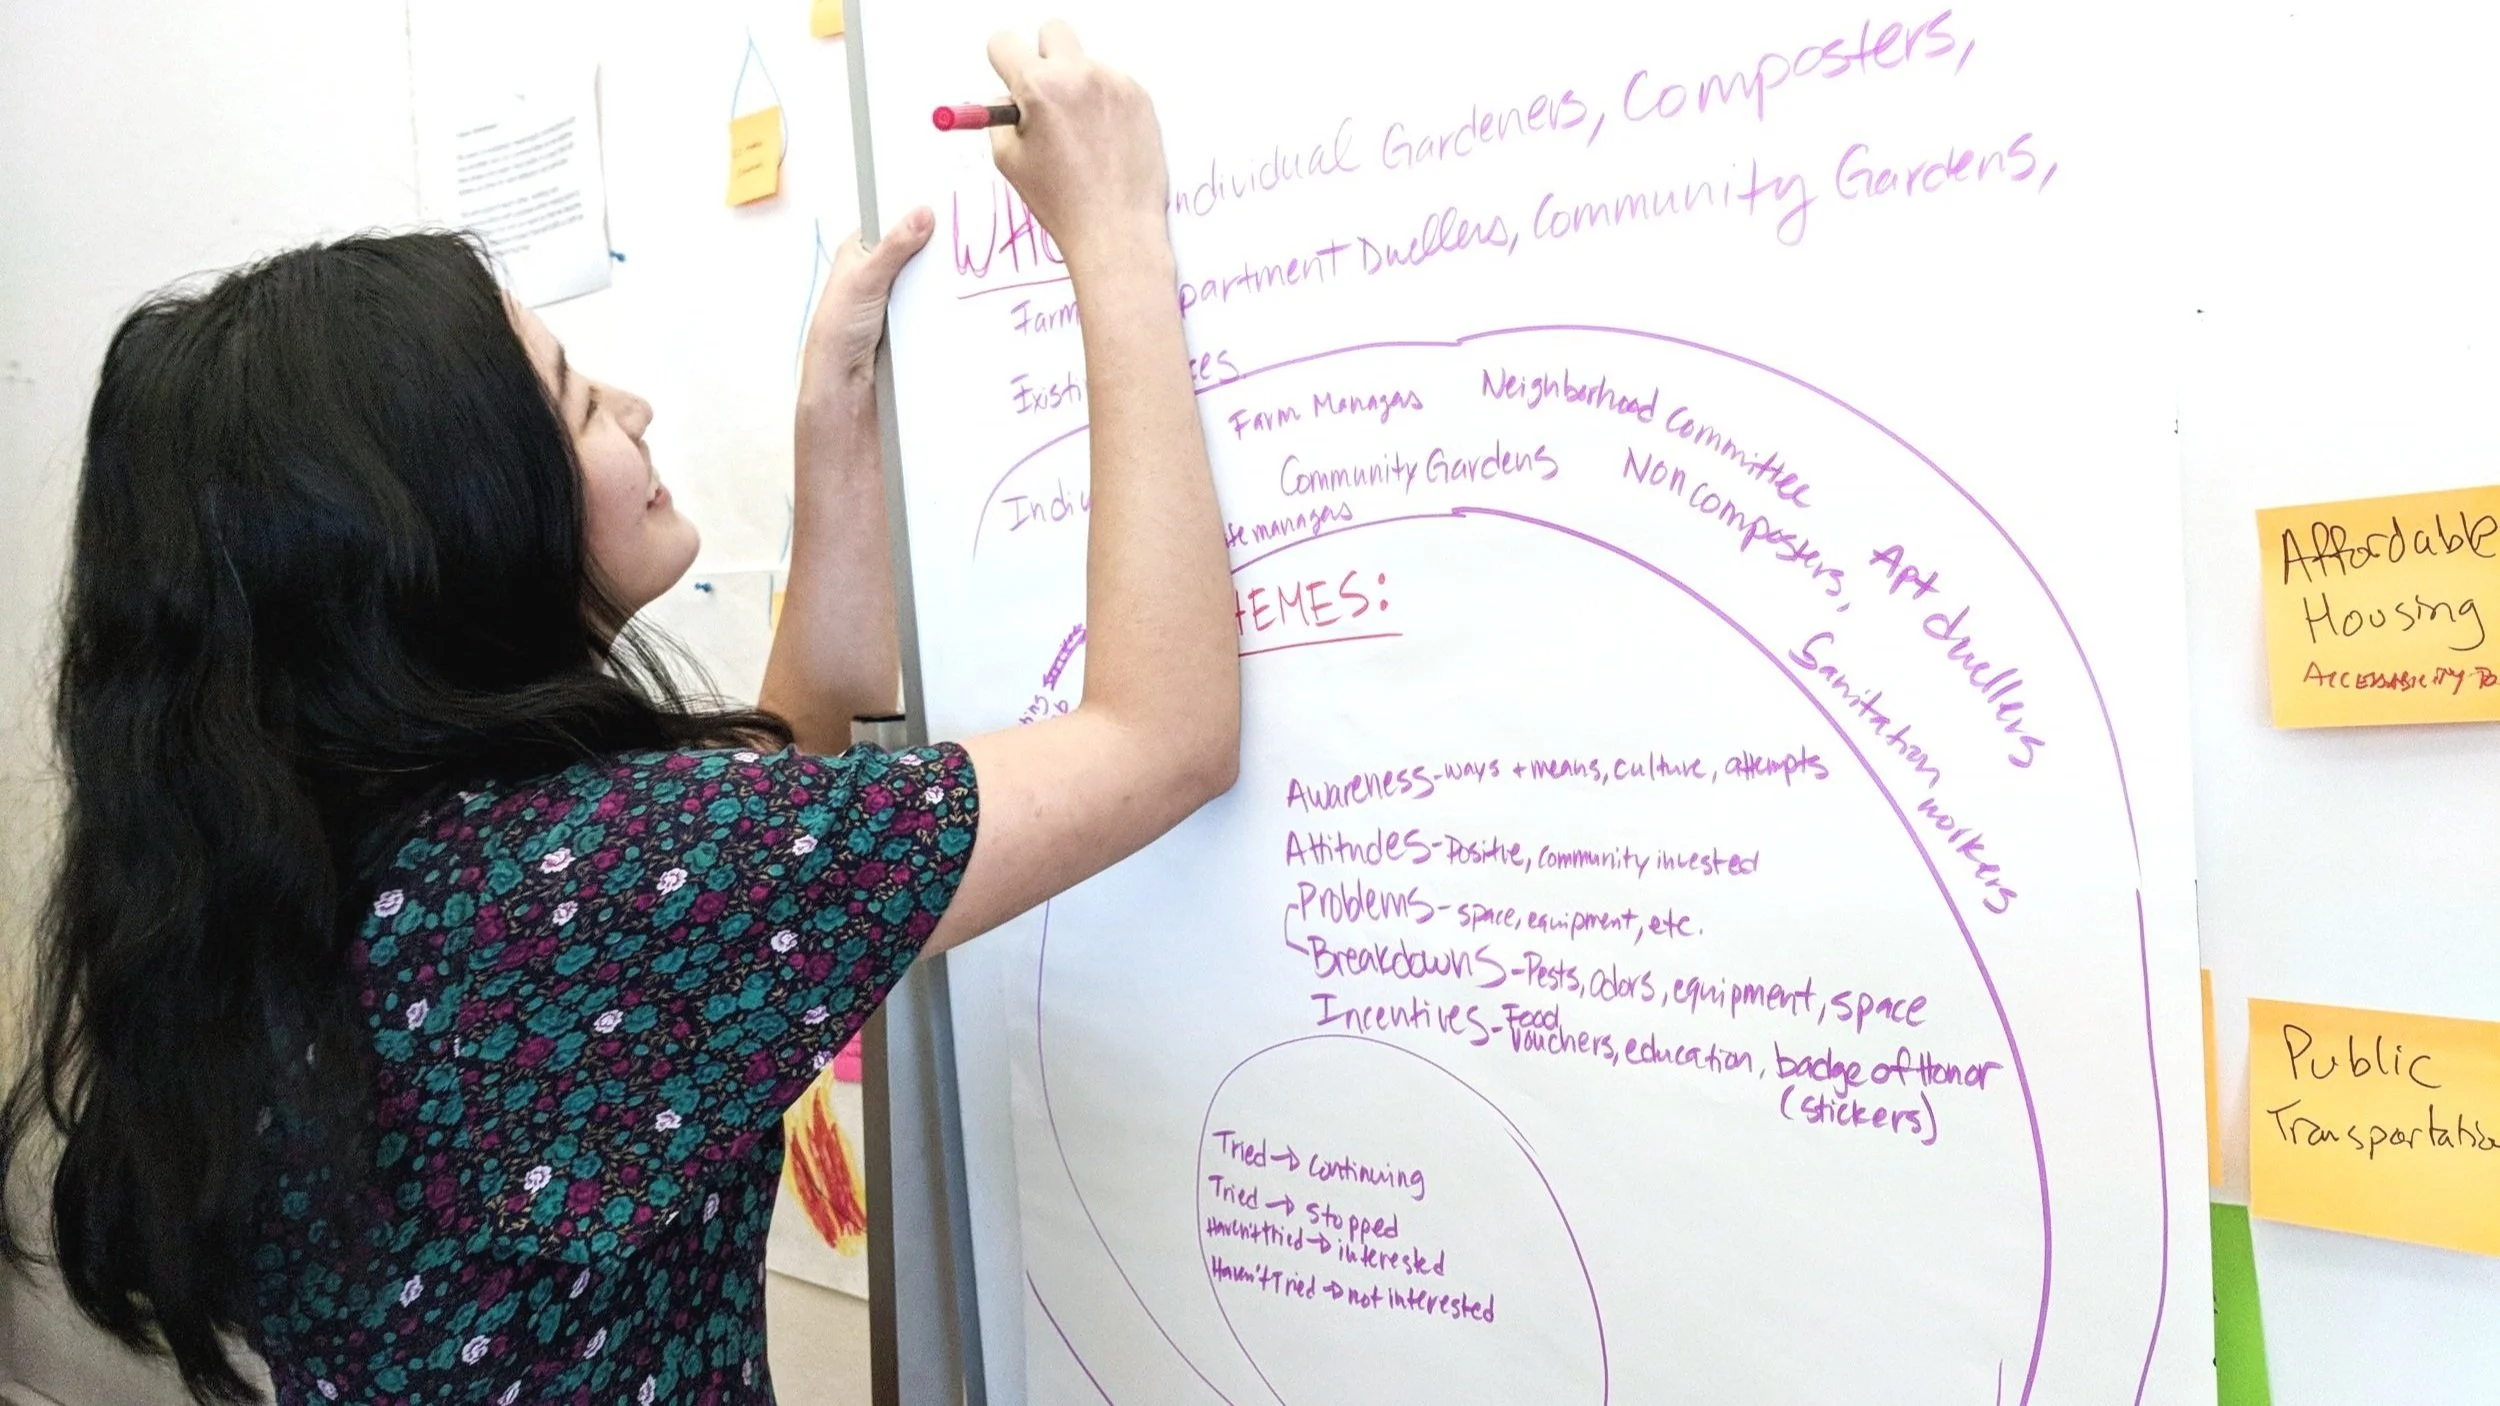 Individual Gardeners, Composters,
WHO
Farm
Apartment Dwellers, Community Gardens,
Existi
ces
Farm Managers
Neighborhood Committee
Community Gardens
Non composters, Apt dwellers
Indiv
managers
Sanitation workers
THEMES:
Awareness-ways + means, culture, attempts
Attitudes-Positive, community invested
Problems-space, equipment, etc.
Breakdowns-Pests, odors, equipment, space
Incentives-Food
Vouchers, education, badge of Honor
(stickers)
Tried → Continuing
Tried → stopped
Haven't tried → interested
Haven't Tried → not interested
Affordable
Housing
ACCESSIBILITY TO
Public
Transportation